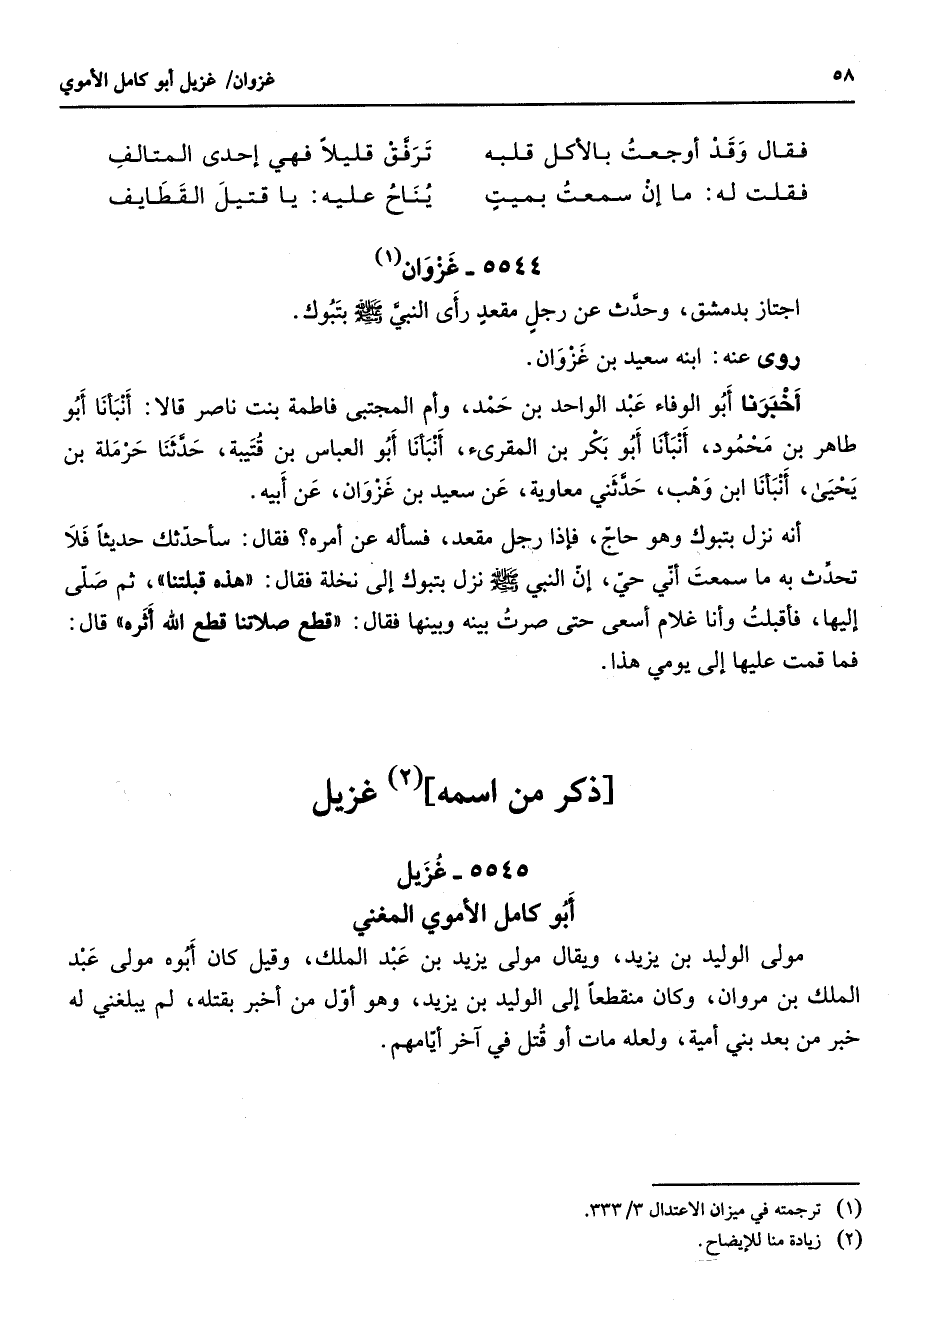 ٥٨ غزوان/ غزيل أبو كامل الأموي
فقال وَقَدْ أوجعتُ بالأكل قلبه تَرَفَّقْ قليلاً فهي إحدى المتالفِ
فقلت له: ما إنْ سمعتُ بميتٍ يُنَاحُ عليه: يا قتيلَ القَطَايف
٥٥٤٤ ـ غَزْوَان(١)
اجتاز بدمشق، وحدَّث عن رجلٍ مقعدٍ رأى النبيَّ ﷺ بتَبُوك.
روى عنه: ابنه سعيد بن غَزْوَان.
أَخْبَرَنا أَبُو الوفاء عَبْد الواحد بن حَمْد، وأم المجتبى فاطمة بنت ناصر قالا: أَنْبَأنَا أَبُو
طاهر بن مَحْمُود، أَنْبَأنَا أَبُو بَكْر بن المقرىء، أَنْبَأنَا أَبُو العباس بن قُتَيبة، حَدَّثَنَا حَرْمَلة بن
يَحْيَىٰ، أَنْبَأنَا ابن وَهْب، حَدَّثَني معاوية، عَن سعيد بن غَزْوَان، عَن أَبيه.
أنه نزل بتبوك وهو حاجّ، فإذا رجل مقعد، فسأله عن أمره؟ فقال: سأحدّثك حديثاً فَلَا
تحدِّث به ما سمعتَ أنّي حيّ، إنّ النبي ﷺ نزل بتبوك إلى نخلة فقال: «هذه قبلتنا»، ثم صَلّى
إليها، فأقبلتُ وأنا غلام أسعى حتى صرتُ بينه وبينها فقال: «قطع صلاتنا قطع الله أثره» قال:
فما قمت عليها إلى يومي هذا.
[ذكر من اسمه](٢) غزيل
٥٥٤٥ ـ غُزَيل
أَبُو كامل الأموي المغني
مولى الوليد بن يزيد، ويقال مولى يزيد بن عَبْد الملك، وقيل كان أَبُوه مولى عَبْد
الملك بن مروان، وكان منقطعاً إلى الوليد بن يزيد، وهو أوّل من أخبر بقتله، لم يبلغني له
خبر من بعد بني أمية، ولعله مات أو قُتل في آخر أيّامهم.
(١) ترجمته في ميزان الاعتدال ٣/ ٣٣٣.
(٢) زيادة منا للإيضاح.